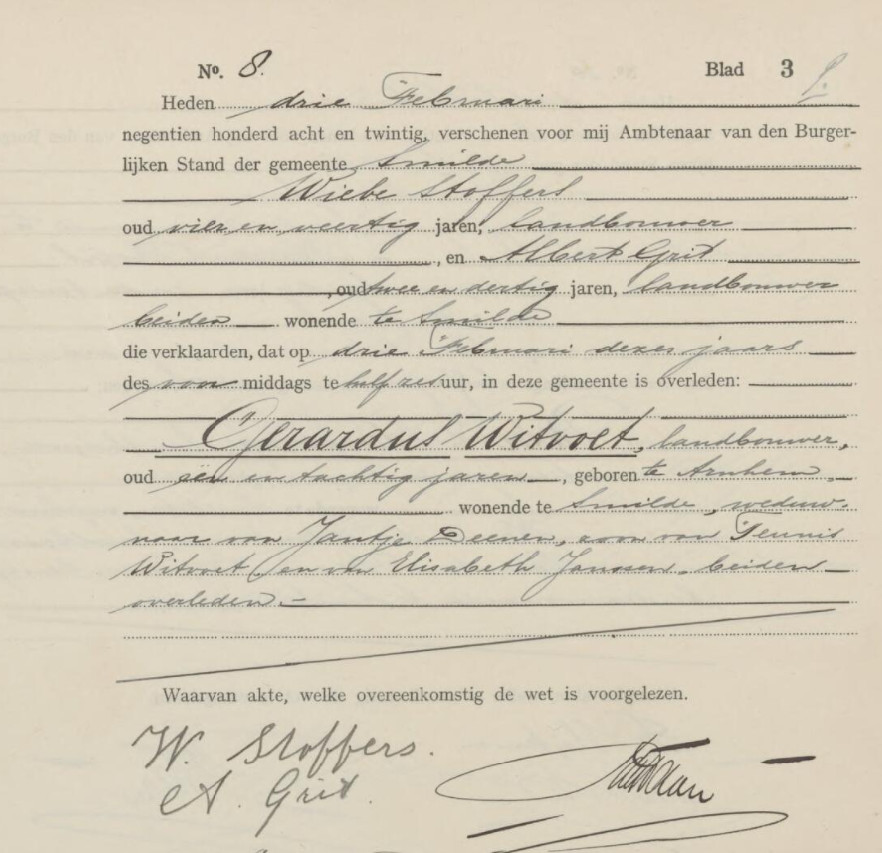 No. 8. Blad 3
Heden drie Februari
negentien honderd acht en twintig, verschenen voor mij Ambtenaar van den Burger-
lijken Stand der gemeente Smilde
Wiebe Stoffers
oud vier en veertig jaren, landbouwer
, en Albert Grit
, oud twee en dertig jaren, landbouwer
beiden wonende te Smilde
die verklaarden, dat op drie Februari dezes jaars
des voor middags te half zes uur, in deze gemeente is overleden:
Gerardus Witvoet, landbouwer,
oud een en tachtig jaren, geboren te Arnhem,
wonende te Smilde, weduw-
naar van Jantje Deenen, zoon van Teunis
Witvoet en van Elisabeth Janssen, beiden
overleden.-
Waarvan akte, welke overeenkomstig de wet is voorgelezen.
W. Stoffers.
A. Grit.